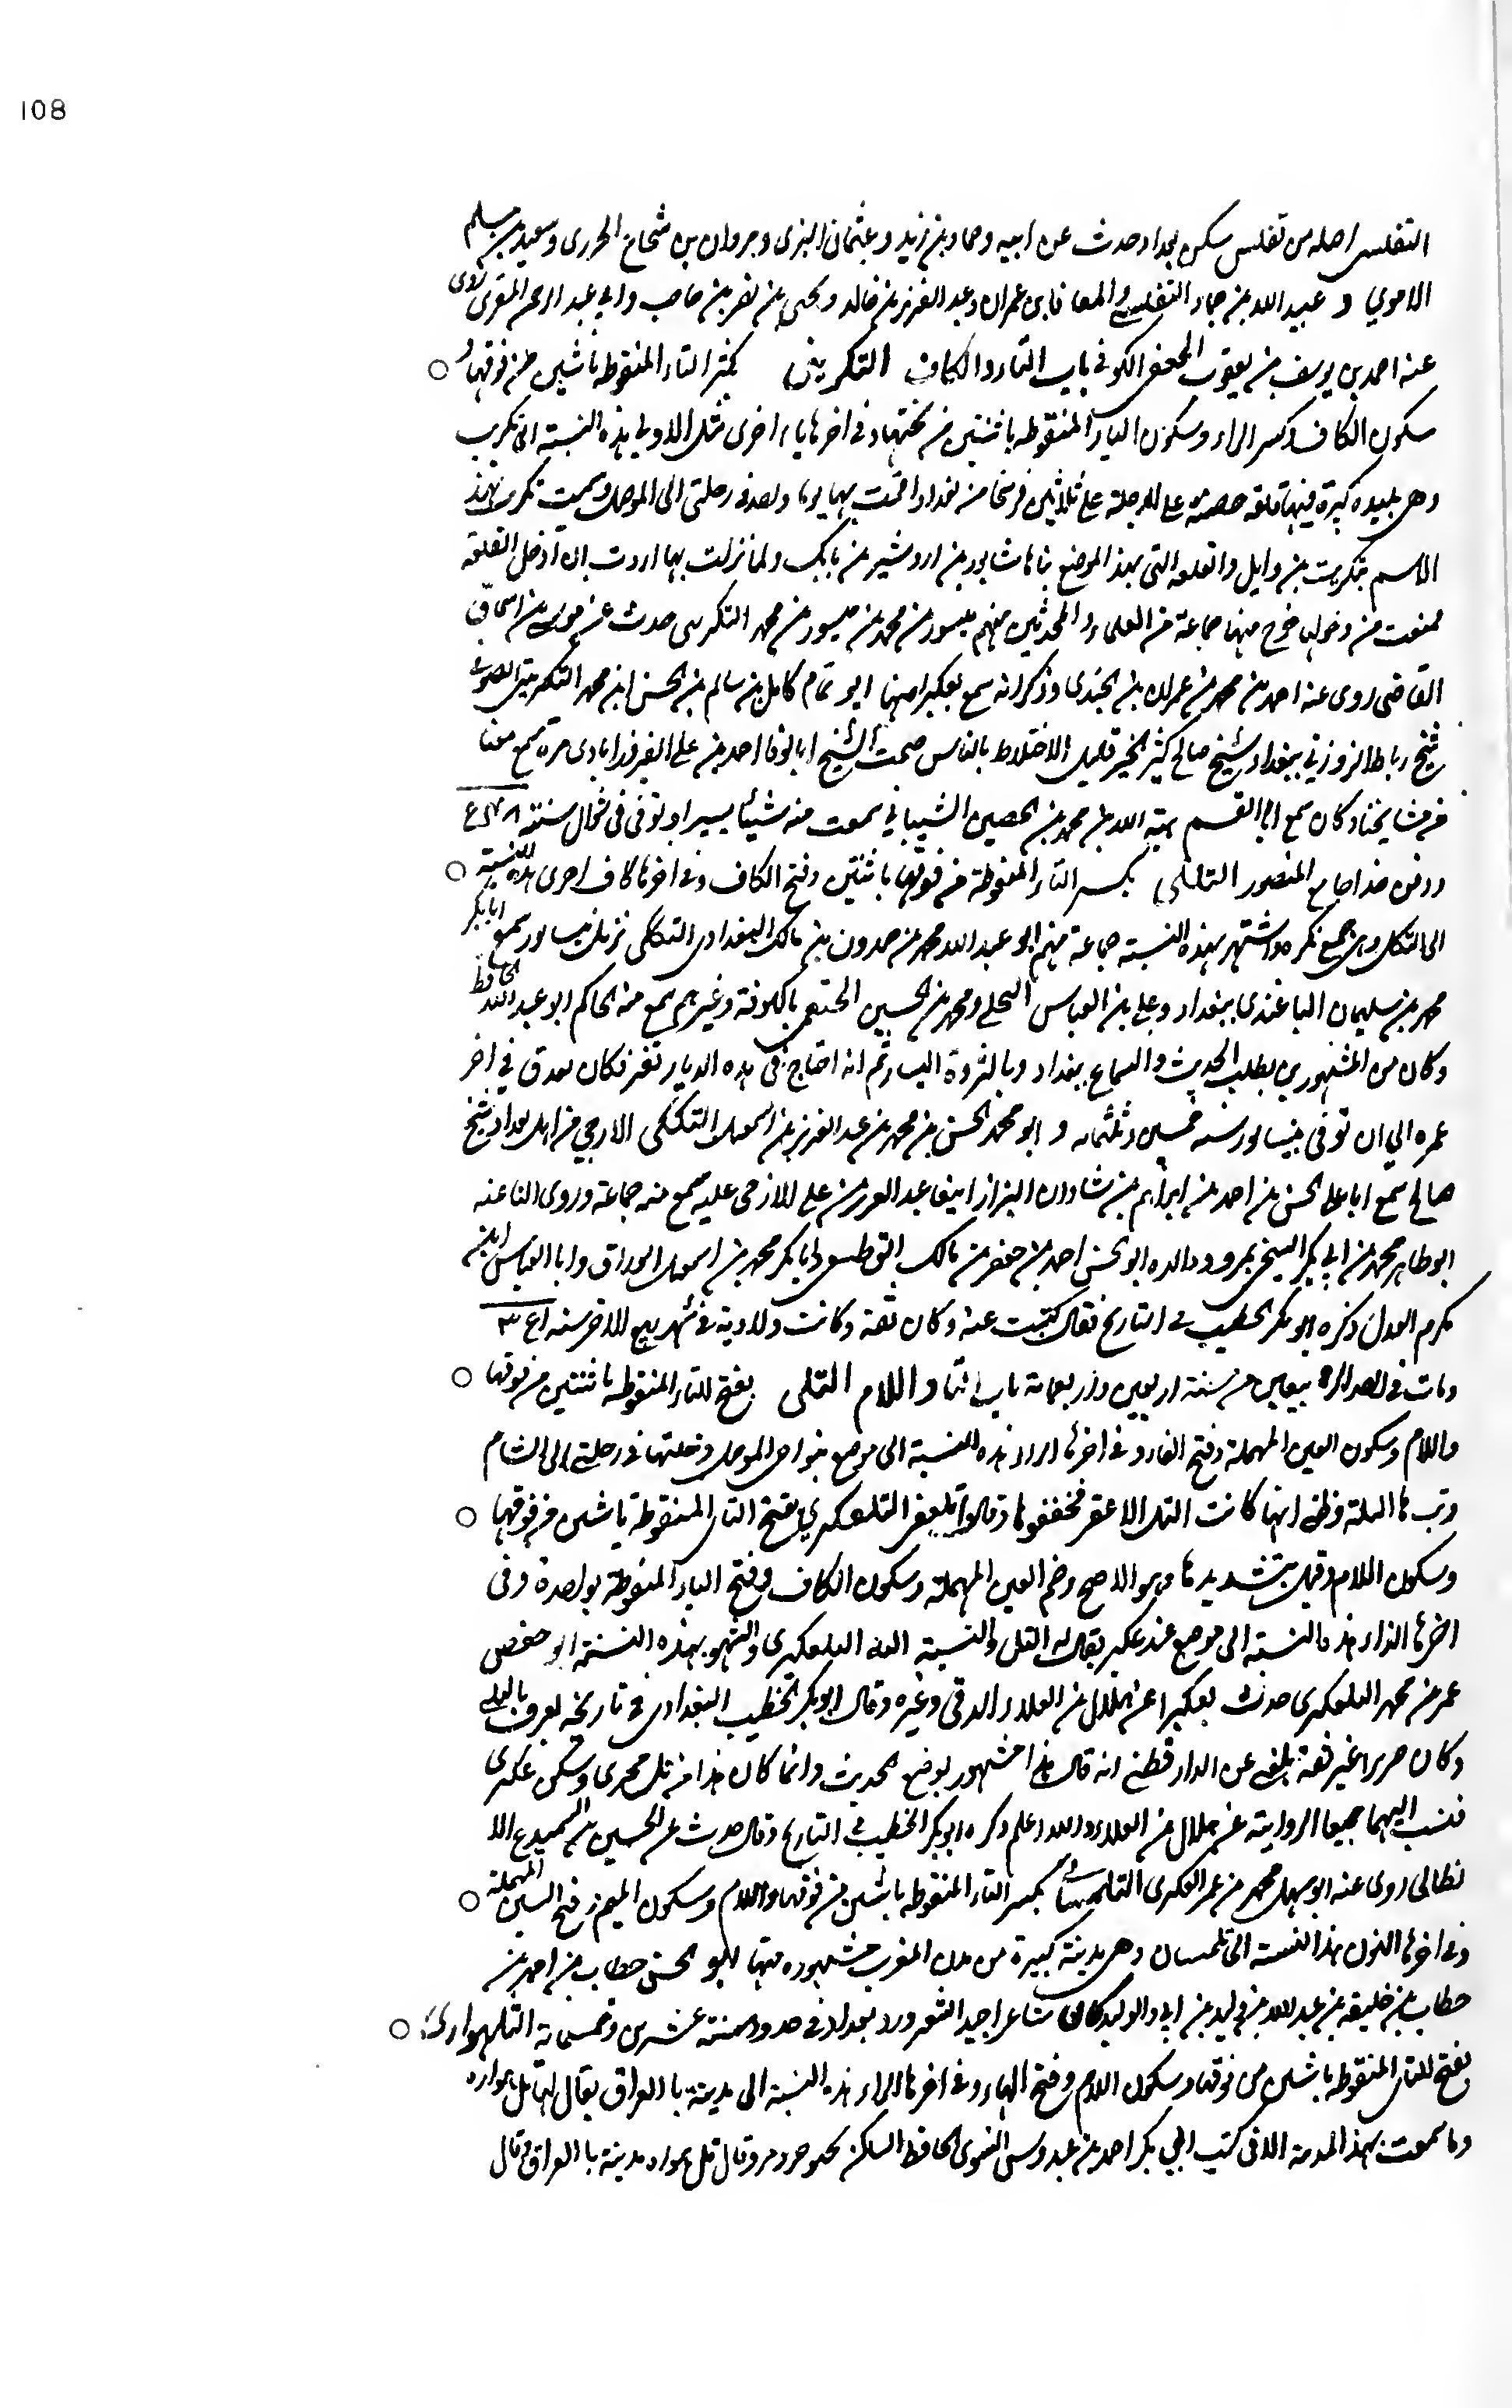 108
التفلسى اصله من تفليس سكن بغداد حدث عن ابيه وحماد بن زيد وعثمان البزى ومروان بن شجاع الجزرى وسعيد بن مسلم
الاموي و عبيد الله بن جماد التفليسي والمعافا بن عمران وعبد العزيز بن خالد ويحيى بن نصر بن حاجب وابي عبد الرحمن المقرى روى
عنه احمد بن يوسف بن يعقوب الجعفى الكوفى باب التاء والكاف التكريتى بكسر التاء المنقوطه باثنتين من فوقها و
سكون الكاف وكسر الراء وسكون الياء المنقوطه باثنتين من تحتها وفى اخرها تاء اخرى مثل الاولى هذه النسبة الى تكريت
وهى بليده كبيرة فيها قلعه حصينة على الدجلة على ثلاثين فرسخا من بغداد اقمت بها يوما واحدا فى رحلتى الى الموصل وسميت تكريت بهذا
الاسم بتكريت بن وايل والقلعه التى بهذا الموضع بناها شابور بن اردشير بن بابك ولما نزلت بها اردت ان ادخل القلعة
فمنعت من دخولها خرج منها جماعة من العلماء والمحدثين منهم ميسور بن محمد بن ميسور بن محمد التكريتى حدث عن موسى بن اسحاق
القاضى روى عنه احمد بن محمد بن عمران بن الجندى وذكر انه سمع بعكبرا منها ابو تمام كامل بن سالم بن الحسن ابن محمد التكريتى الصوفى
شيخ رباط الزوزنى ببغداد شيخ صالح كثير الخير قليل الاختلاط بالناس صحب الشيخ ابا الوفا احمد بن على الفيروزابادى مرة سمع معنا
من مشايخنا وكان سمع ابا القسم هبة الله بن محمد بن الحصين الشيبانى سمعت منه شيئا يسيرا وتوفى فى شوال سنة
ودفن حذا جامع المنصور التككى بكسر التاء المنقوطة من فوقها باثنتين وفتح الكاف وفى اخرها كاف اخرى هذه النسبة
الى التكك وهى جمع تكه واشتهر بهذه النسبة جماعة منهم ابو عبد الله محمد بن حمدون بن مالك البغدادى التككى نزيل نيسابور سمع ابا بكر
محمد بن سليمان الباغندى ببغداد وعلى بن العباس البجلى ومحمد بن الحسين الخثعمى بالكوفة وغيرهم سمع منه الحاكم ابو عبد الله الحافظ
وكان من المشهورين بطلب الحديث والسماع ببغداد وبالثروة اليسار ثم انه احتاج فى هذه الديار فكان يورق فى اخر
عمره الى ان توفى بنيسابور سنه خمسين وثلثمائه و ابو محمد الحسن بن محمد بن عبد العزيز بن اسمعيل التككى الازجي من اهل بغداد شيخ
صالح سمع ابا على الحسن بن احمد بن ابراهيم بن شاذان البزاز ايضا عبد العزيز بن على الازجى عليه سمع منه جماعة وروى لنا عنه
ابو طاهر محمد بن ابى بكر السنجى بمرو ووالده ابو الحسن احمد بن جعفر بن مالك القطيعى وابا بكر محمد بن اسمعيل الوراق وابا العباس ابن
مكرم العدل ذكره ابو بكر الخطيب فى التاريخ فقال كتبت عنه وكان ثقة وكانت ولادته فى شهر ربيع الاخر سنه
ومات فى احد الربيعين من سنة اربعين واربعمائة باب التاء واللام التلعفرى بفتح التاء المنقوطه باثنتين من فوقها
واللام وسكون العين المهملة وفتح الفاء وفى اخرها الراء هذه النسبة الى موضع بنواحى الموصل دخلتها فى رحلتى الى الشام
وبت بها ليلة وظنى انها كانت التل الاعفر فخففوها وقالوا تلعفر التلعكبرى بفتح التاء المنقوطة باثنتين من فوقها
وسكون اللام وقيل بتشديدها وهو الاصح وضم العين المهملة وسكون الكاف وفتح الباء المنقوطة بواحدة وفى
اخرها الراء هذه النسبة الى موضع عند عكبر يقال له التل والنسبة اليه التلعكبرى والمشهور بهذه النسبة ابو حفص
عمر بن محمد التلعكبرى حدث بعكبرا عن هلال بن العلاء الرقى وغيره وقال ابو بكر الخطيب البغدادى فى تاريخه يعرف بالتلى
وكان ضريرا غير ثقة بلغنى عن الدارقطنى انه قال هذا مشهور بوضع الحديث وانما كان هذا من تل محرى وسكن عكبرى
فنسب اليهما جميعا الرواية عن هلال بن العلاء والله اعلم ذكره ابو بكر الخطيب فى التاريخ وقال حدث عن الحسين بن السميدع الا
نطاكى روى عنه ابو سهل محمد بن عمر العكبرى التلمسانى بكسر التاء المنقوطه باثنتين من فوقها واللام وسكون الميم وفتح السين المهملة
وفى اخرها النون هذا النسبة الى تلمسان وهى مدينة كبيرة من مدن المغرب مشهوره منها ابو الحسن خطاب بن احمد بن
خطاب بن خليفه بن عبد الله بن وليد بن ابى الوليد كان شاعرا جيد الشعر ورد بغداد فى حدود سنة عشرين وخمسمائة التلهوارى
بفتح التاء المنقوطه باثنتين من فوقها وسكون اللام وفتح الهاء وفى اخرها الراء هذه النسبة الى مدينة بالعراق يقال لها تل هواره
وما سمعت بهذه المدينة الا فى كتب ابى بكر احمد بن عبدوس النسوى الحافظ وقال تل هواره مدينة بالعراق قال